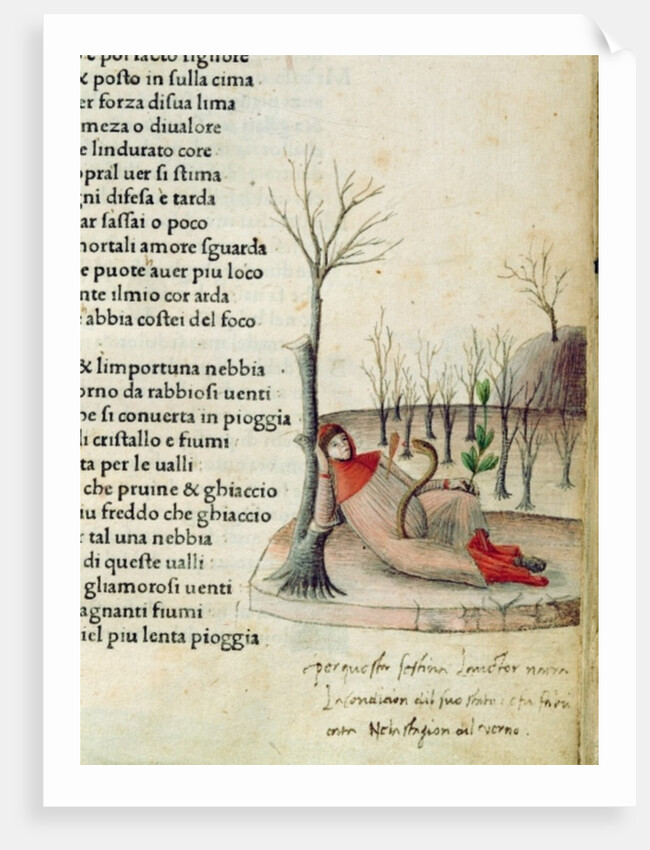 e poi facto signore
& posto in ſulla cima
er forza diſua lima
meza o diualore
e lindurato core
opral uer ſi ſtima
gni difeſa è tarda
ar ſaſſai o poco
mortali amore ſguarda
e puote auer piu loco
nte ilmio cor arda
abbia coſtei del foco
& limportuna nebbia
orno da rabbioſi uenti
be ſi conuerta in pioggia
li criſtallo e fiumi
ta per le ualli
che pruine & ghiaccio
iu freddo che ghiaccio
r tal una nebbia
di queſte ualli
gliamoroſi uenti
agnanti fiumi
iel piu lenta pioggia
per queſta ſeſtina Lauctor narra
La condicion dil ſuo ſtato
Ne la ſtagion dil verno.